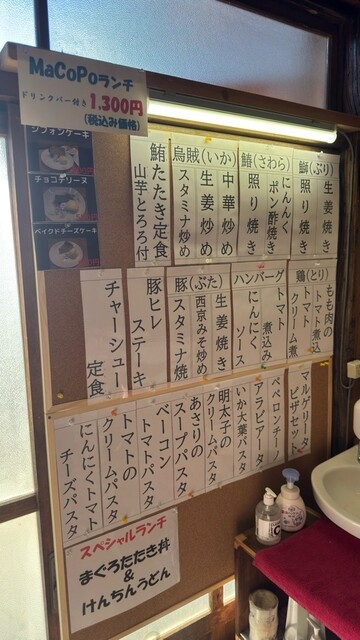 MaCoPoランチ
ドリンクバー付き 1,300円
(税込み価格)
シフォンケーキ
チョコテリーヌ
ベイクドチーズケーキ
鰤(ぶり)
生姜焼き
照り焼き
鰆(さわら)
にんにく
ポン酢焼き
照り焼き
烏賊(いか)
中華炒め
生姜炒め
スタミナ炒め
鮪たたき定食
山芋とろろ付
鶏(とり)
もも肉の
トマト煮込
トマト
クリーム煮
ハンバーグ
トマト
煮込み
にんにく
ソース
豚(ぶた)
生姜焼き
西京みそ炒め
スタミナ焼
豚ヒレ
ステーキ
チャーシュー
定食
マルゲリータ
ピザセット
ペペロンチーノ
アラビアータ
いか大葉パスタ
明太子の
クリームパスタ
あさりの
スープパスタ
ベーコン
トマトパスタ
トマトの
クリームパスタ
にんにくトマト
チーズパスタ
スペシャルランチ
まぐろたたき丼
&
けんちんうどん